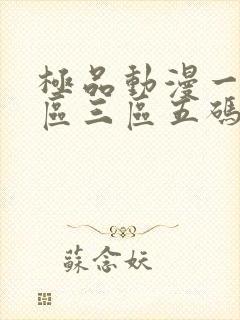 極品動漫一
區三區五碼
蘇念妖